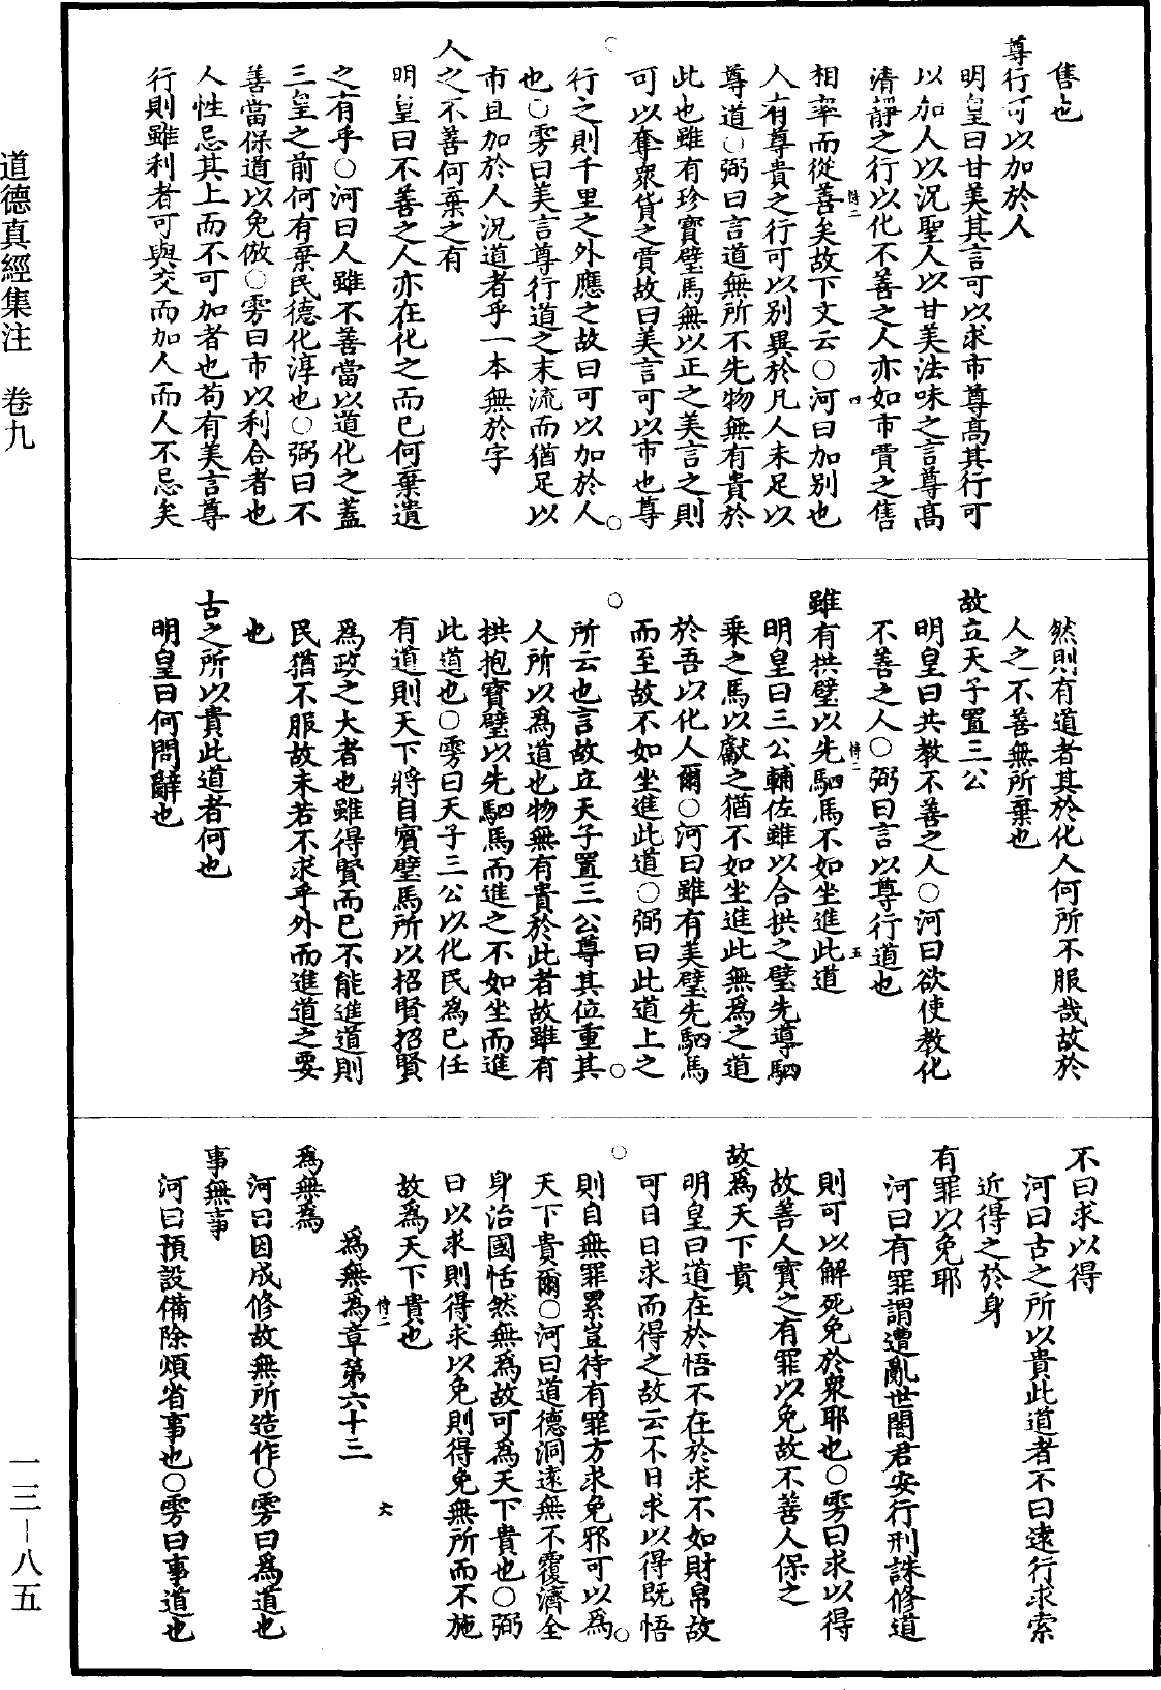 售也
尊行可以加於人
明皇曰甘美其言可以求市尊高其行可
以加人以況聖人以甘美法味之言尊高
清靜之行以化不善之人亦如市賈之售
相率而從善矣故下文云○河曰加别也
人有尊貴之行可以别異於凡人未足以
尊道○弼曰言道無所不先物無有貴於
此也雖有珍寶璧馬無以正之美言之則
可以奪衆貨之賈故曰美言可以市也尊
行之則千里之外應之故曰可以加於人
也○雱曰美言尊行道之末流而猶足以
市且加於人況道者乎一本無於字
人之不善何棄之有
明皇曰不善之人亦在化之而已何棄遺
之有乎○河曰人雖不善當以道化之蓋
三皇之前何有棄民德化淳也○弼曰不
善當保道以免倣○雱曰市以利合者也
人性忌其上而不可加者也苟有美言尊
行則雖利者可與交而加人而人不忌矣
然則有道者其於化人何所不服哉故於
人之不善無所棄也
故立天子置三公
明皇曰共教不善之人○河曰欲使教化
不善之人○弼曰言以尊行道也
雖有拱璧以先駟馬不如坐進此道
明皇曰三公輔佐雖以合拱之璧先導駟
乘之馬以獻之猶不如坐進此無為之道
於吾以化人爾○河曰雖有美璧先駟馬
而至故不如坐進此道○弼曰此道上之
所云也言故立天子置三公尊其位重其
人所以為道也物無有貴於此者故雖有
拱抱寶璧以先駟馬而進之不如坐而進
此道也○雱曰天子三公以化民為已任
有道則天下將自賓璧馬所以招賢招賢
為政之大者也雖得賢而已不能進道則
民猶不服故未若不求乎外而進道之要
也
古之所以貴此道者何也
明皇曰何問辭也
不曰求以得
河曰古之所以貴此道者不曰遠行求索
近得之於身
有罪以免耶
河曰有罪謂遭亂世闇君妄行刑誅修道
則可以解死免於衆耶也○雱曰求以得
故善人寶之有罪以免故不善人保之
故為天下貴
明皇曰道在於悟不在於求不如財帛故
可日日求而得之故云不日求以得既悟
則自無罪累豈待有罪方求免邪可以為
天下貴爾○河曰道德洞遠無不覆濟全
身治國恬然無為故可為天下貴也○弼
曰以求則得求以免則得免無所而不施
故為天下貴也
為無為章第六十三
為無為
河曰因成修故無所造作○雱曰為道也
事無事
河曰預設備除煩省事也○雱曰事道也
道德真經集注　卷九
一三－八五